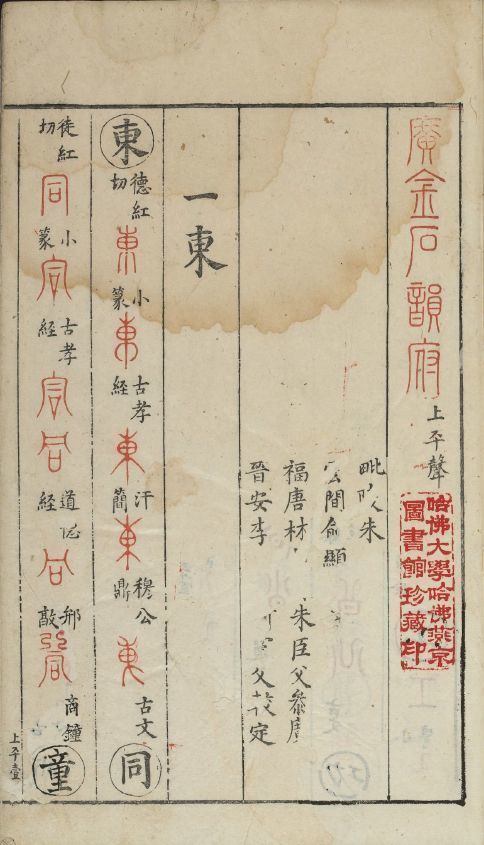 廣金石韻府上平聲
哈佛大學哈佛燕京
圖書館珍藏印
毗 朱
雲間俞顯
福唐林 朱臣父叅廣
晉安李 父 定
一東
東 德紅切 東 小篆 東 古孝經 東 汗簡 東 穆公鼎 東 古文 同
徒紅切 同 小篆 同 古孝經 同 同 道德經 同 邢敦 同 商鐘 童
上平壹